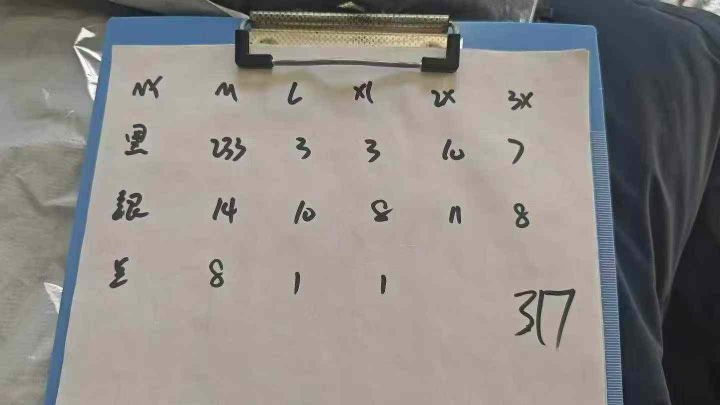 M L XL 2X 3X
黑 233 3 3 10 7
銀 14 10 8 11 8
8 1 1
317